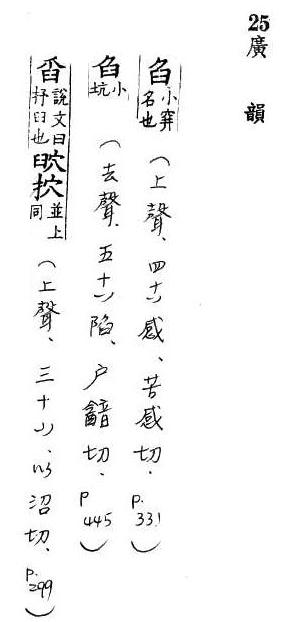 25 廣韻
臽 小穽名也（上聲、四十八感、苦感切. p.331）
臽 小坑（去聲、五十八陷、户韽切. p445）
舀 說文曰抒臼也 抭 並上同（上聲、三十小、以沼切、p.299）